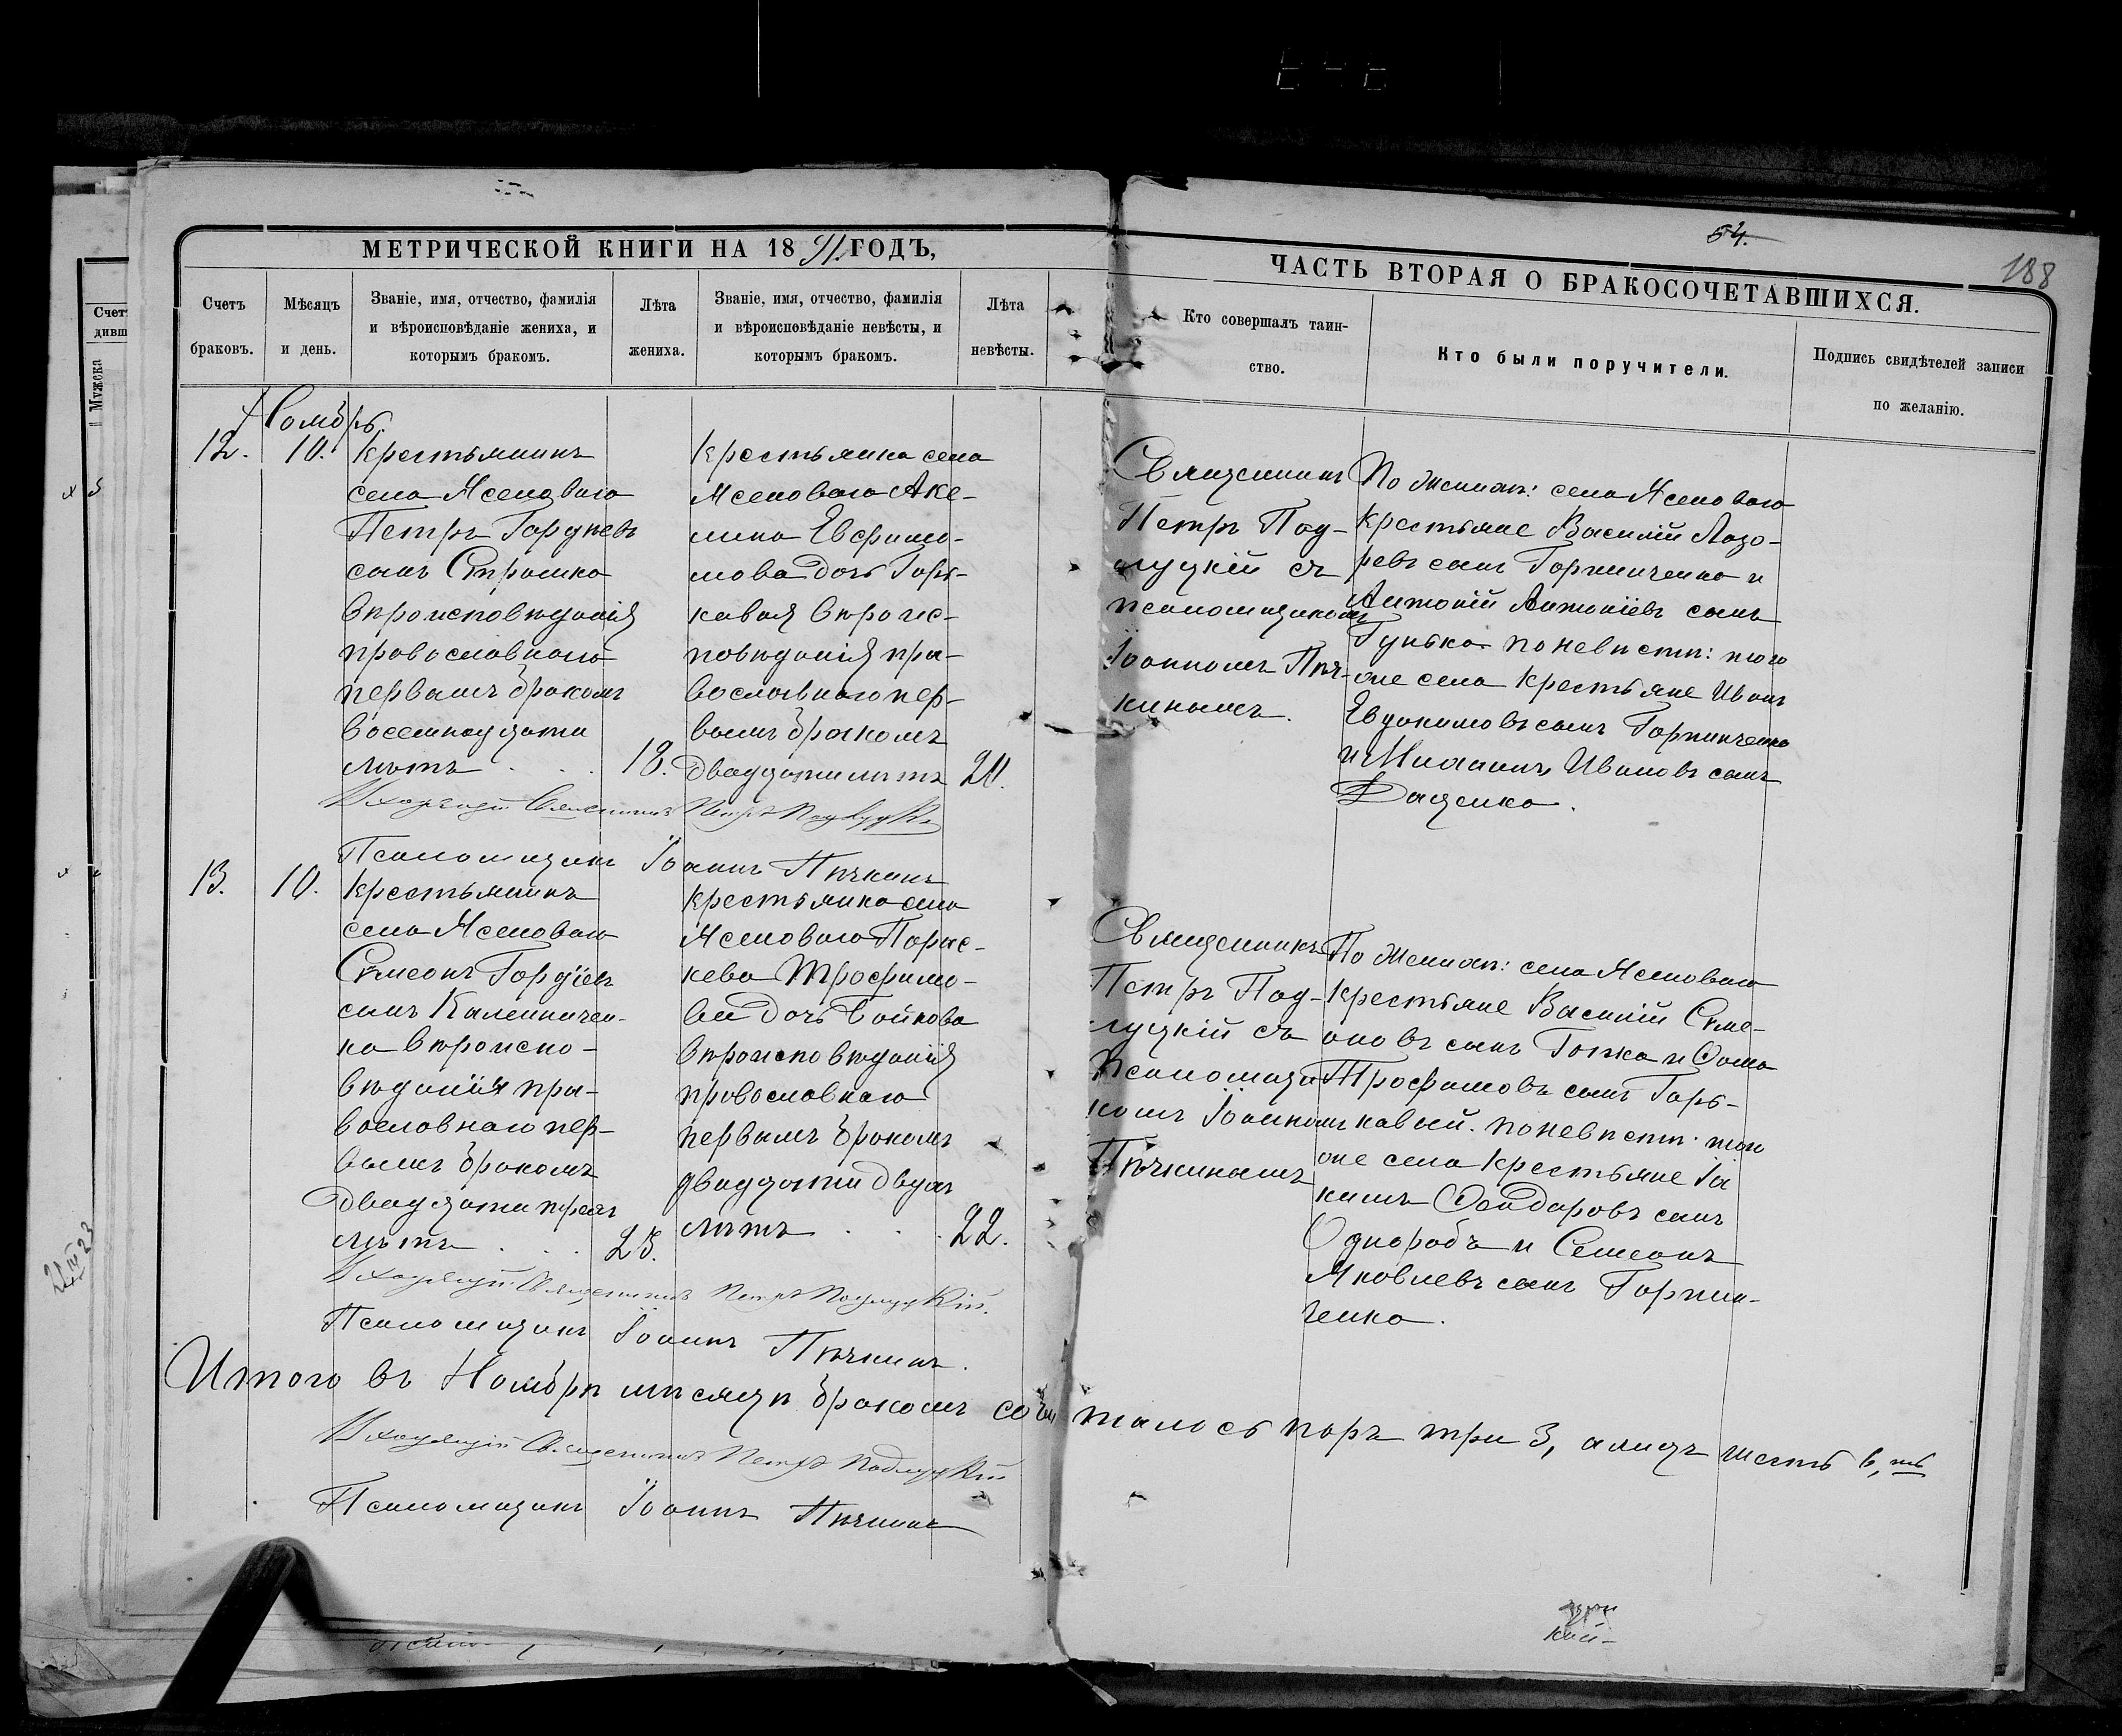 МЕТРИЧЕСКОЙ КНИГИ НА 1891 ГОДЪ,
Счетъ
браковъ.
Мѣсяцъ
и день.
Званіе, имя, отчество, фамилія
и вѣроисповѣданіе жениха, и
которымъ бракомъ.
Лѣта
жениха.
Званіе, имя, отчество, фамилія
и вѣроисповѣданіе невѣсты, и
которымъ бракомъ.
Лѣта
невѣсты.
54.
188
ЧАСТЬ ВТОРАЯ О БРАКОСОЧЕТАВШИХСЯ.
Кто совершалъ таин-
ство.
Кто были поручители.
Подпись свидѣтелей записи
по желанію.
Ноябрь.
12.
10.
крестьянинъ
села Ясеноваго
Петръ Гордѣевъ
сынъ Стрѣшка
вѣроисповѣданія
православнаго
первымъ бракомъ
восемнадцати
лѣтъ . . . 18.
крестьянка села
Ясеноваго Аке-
лина Евфимо-
мова дочь Горь-
кавая вѣроис-
повѣданія пра-
вославнаго пер-
вымъ бракомъ
двадцати лѣтъ 20.
Священникъ
Петръ Под-
луцкій съ
псаломщикомъ
Іоанномъ Пѣч-
кинымъ.
По женихѣ: села Ясеноваго
крестьяне Василій Лазо-
ревъ сынъ Горпинченко и
Антоній Антоніевъ сынъ
Гунька по невѣстѣ: того
же села крестьяне Иванъ
Евдокимовъ сынъ Горпинченко
и Михаилъ Ивановъ сынъ
Даценко.
Священникъ Петръ Подлуцкій
Псаломщикъ Іоаннъ Пѣчкинъ
13.
10.
крестьянинъ
села Ясеноваго
Симеонъ Гордіевъ
сынъ Калениченко-
ко вѣроиспо-
вѣданія пра-
вославнаго пер-
вымъ бракомъ
двадцати трехъ
лѣтъ . . . 23.
крестьянка села
Ясеноваго Парас-
кева Трофимо-
ва дочь Бойкова
вѣроисповѣданія
православнаго
первымъ бракомъ
двадцати двухъ
лѣтъ . . . 22.
Священникъ
Петръ Под-
луцкій съ
псаломщи-
комъ Іоанномъ
Пѣчкинымъ
По женихѣ: села Ясеноваго
крестьяне Василій Симе-
оновъ сынъ Гонжа и Фома
Трофимовъ сынъ Горь-
кавый. по невѣстѣ: того
же села крестьяне Іа
кимъ Феодоровъ сынъ
Одноробъ и Симеонъ
Яковлевъ сынъ Горпин-
ченко.
Священникъ Петръ Подлуцкій.
Псаломщикъ Іоаннъ Пѣчкинъ.
Итого въ Ноябрѣ мѣсяцѣ бракомъ сочиталось паръ три 3, а лицъ шесть 6,ть
Священникъ Петръ Подлуцкій
Псаломщикъ Іоаннъ Пѣчкинъ